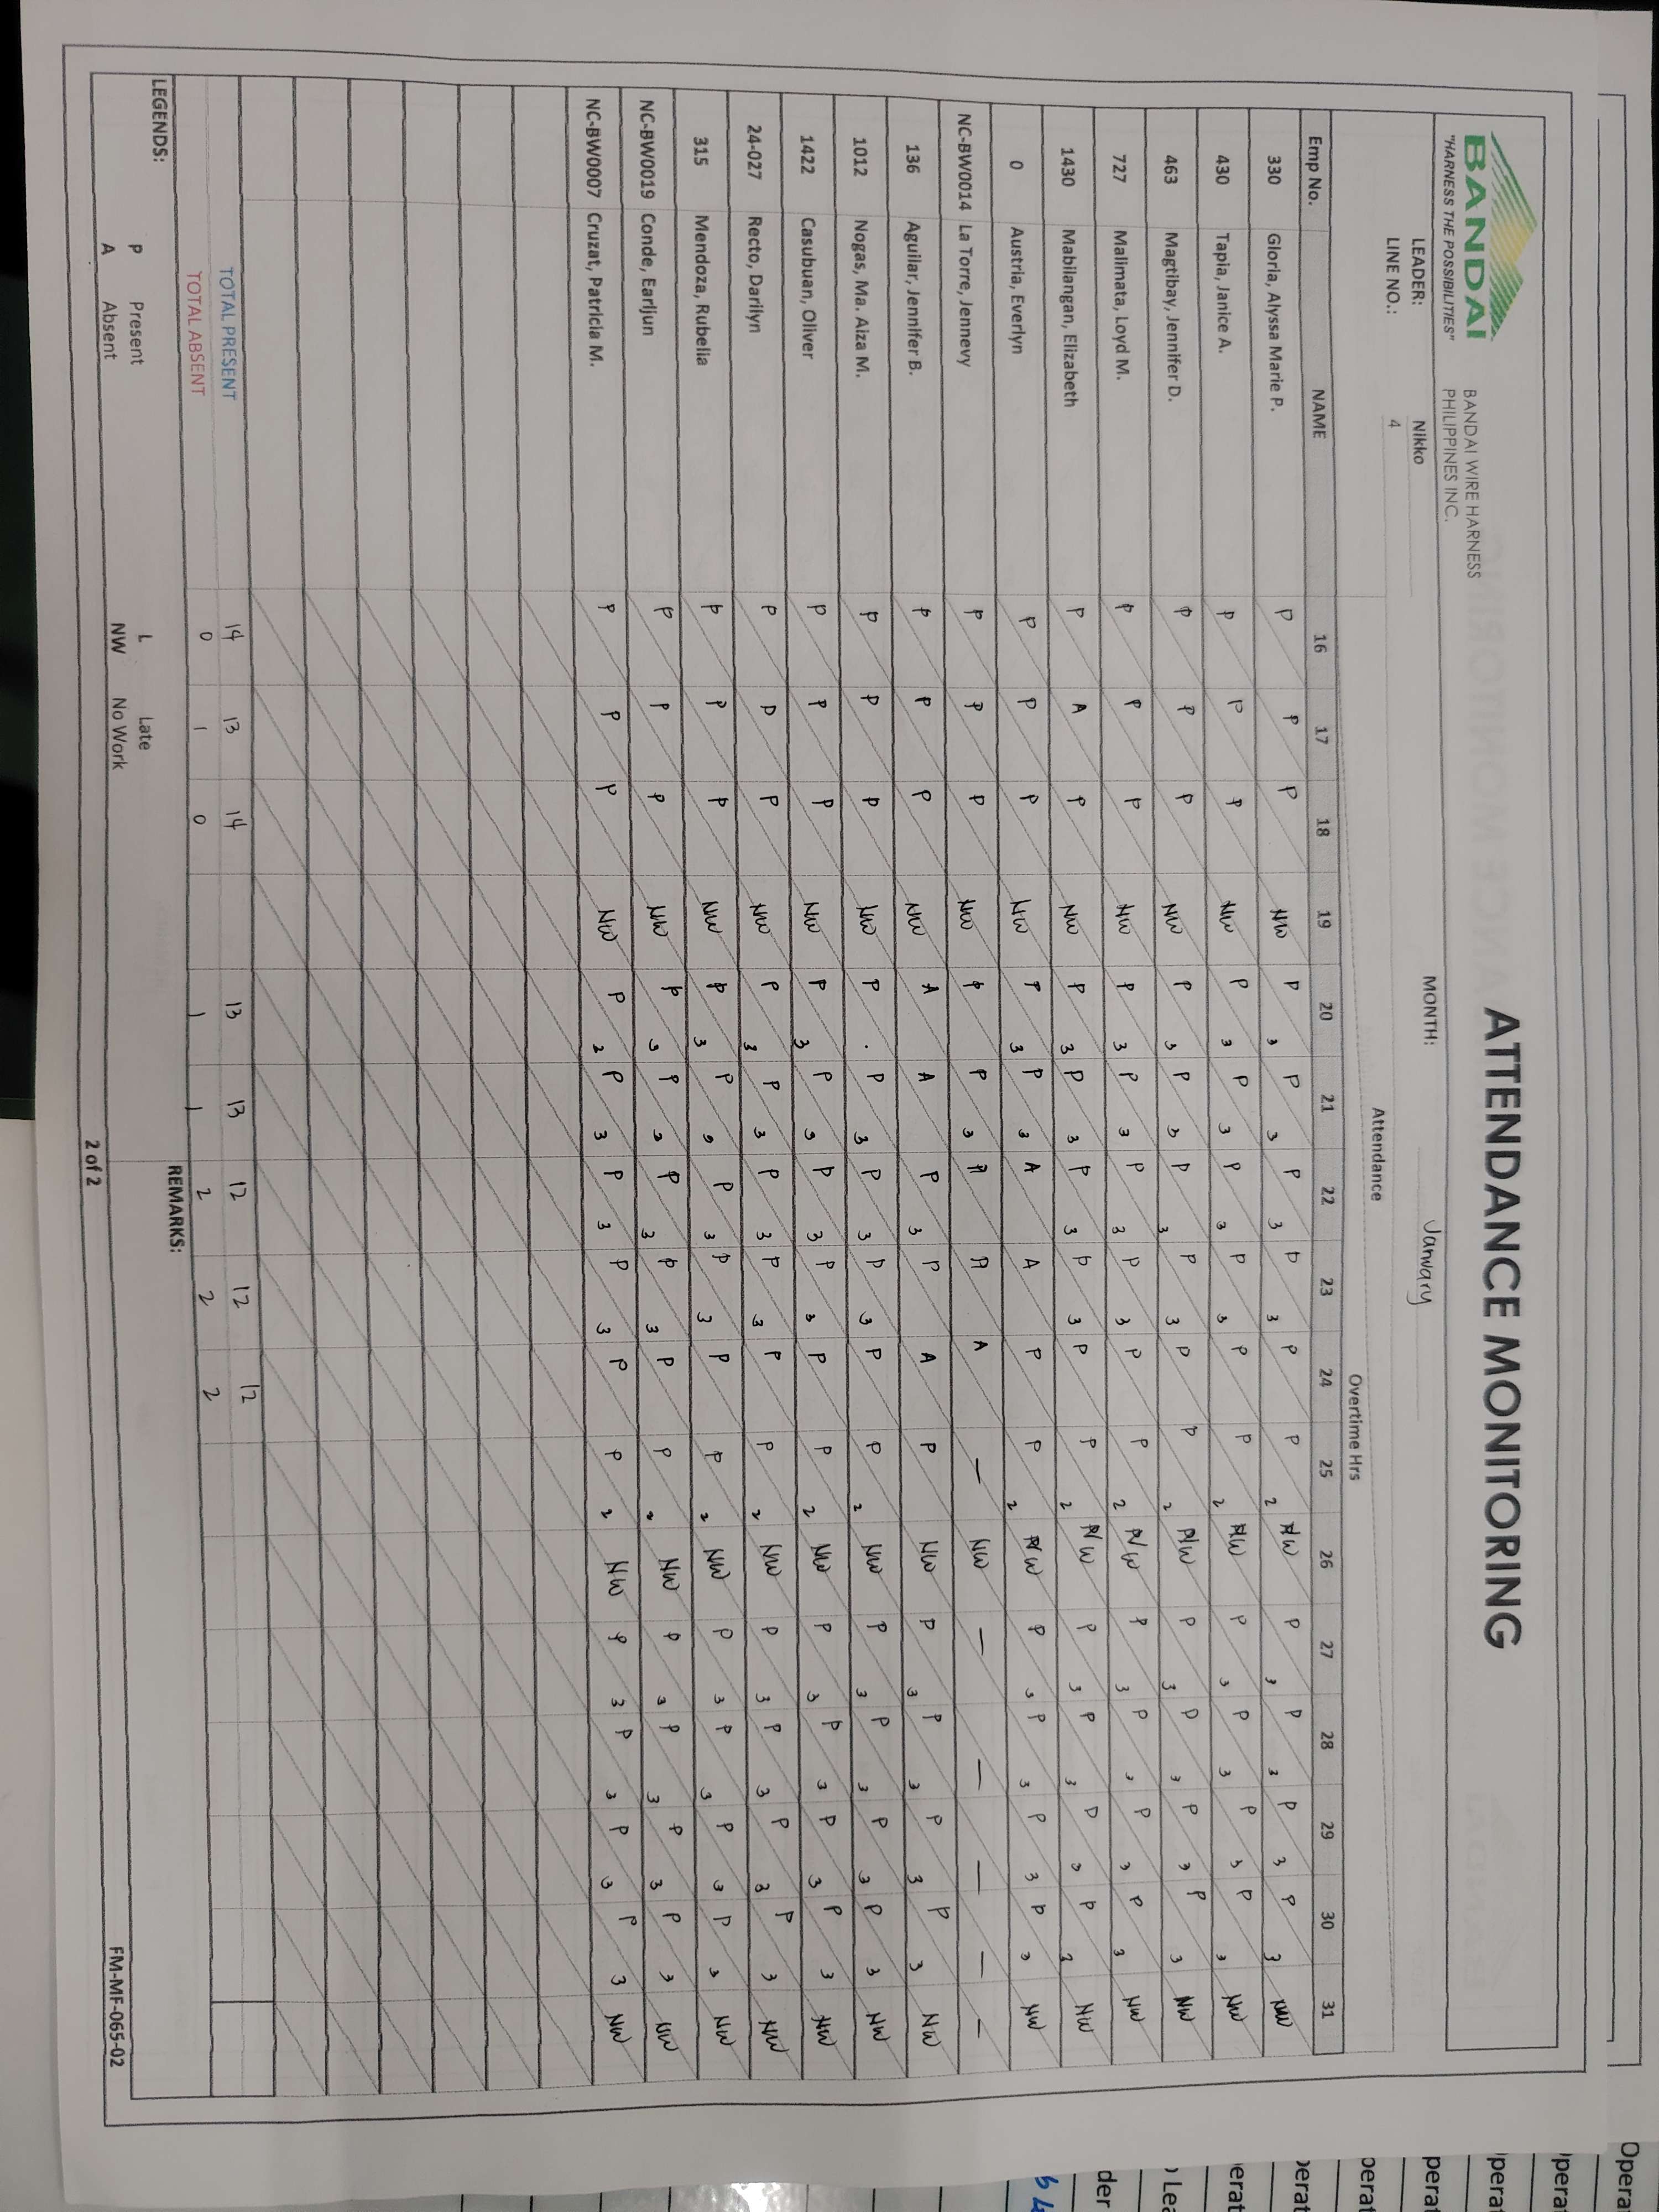 BANDAI
"HARNESS THE POSSIBILITIES"
BANDAI WIRE HARNESS
PHILIPPINES INC.
ATTENDANCE MONITORING
LEADER: Nikko MONTH: January
LINE NO.: 4
Attendance
Overtime Hrs
Emp No. NAME 16 17 18 19 20 21 22 23 24 25 26 27 28 29 30 31
330 Gloria, Alyssa Marie P. P P P NW P 3 P 3 P 3 P 3 P P 2 NW P 3 P 3 P 3 P 3 NW
430 Tapia, Janice A. P P P NW P 3 P 3 P 3 P 3 P P 2 NW P 3 P 3 P 3 P 3 NW
463 Magtibay, Jennifer D. P P P NW P 3 P 3 P 3 P 3 P P 2 NW P 3 P 3 P 3 P 3 NW
727 Malimata, Loyd M. P P P NW P 3 P 3 P 3 P 3 P P 2 NW P 3 P 3 P 3 P 3 NW
1430 Mabilangan, Elizabeth P A P NW P 3 P 3 P 3 P 3 P P 2 NW P 3 P 3 P 3 P NW
0 Austria, Everlyn P P P NW P 3 P 3 A A P P 2 NW P 3 P 3 P 3 P 3 NW
NC-BW0014 La Torre, Jennevy P P P NW P P 3 A A A — NW — — — — —
136 Aguilar, Jennifer B. P P P NW A A P 3 P A P NW P 3 P 3 P 3 P 3 NW
1012 Nogas, Ma. Aiza M. P P P NW P P 3 P 3 P 3 P P 2 NW P 3 P 3 P 3 P 3 NW
1422 Casubuan, Oliver P P P NW P 3 P 3 P 3 P 3 P P 2 NW P 3 P 3 P 3 P 3 NW
24-027 Recto, Darilyn P P P NW P 3 P 3 P 3 P 3 P P 2 NW P 3 P 3 P 3 P 3 NW
315 Mendoza, Rubelia P P P NW P 3 P 3 P 3 P 3 P P 2 NW P 3 P 3 P 3 P 3 NW
NC-BW0019 Conde, Earljun P P P NW P 3 P 3 P 3 P 3 P P 2 NW P 3 P 3 P 3 P 3 NW
NC-BW0007 Cruzat, Patricia M. P P P NW P 2 P 3 P 3 P 3 P P 2 NW P 3 P 3 P 3 P 3 NW
TOTAL PRESENT 14 13 14 13 13 12 12 12
TOTAL ABSENT 0 1 0 1 1 2 2 2
LEGENDS: REMARKS:
P Present L Late
A Absent NW No Work
2 of 2
FM-MF-065-02